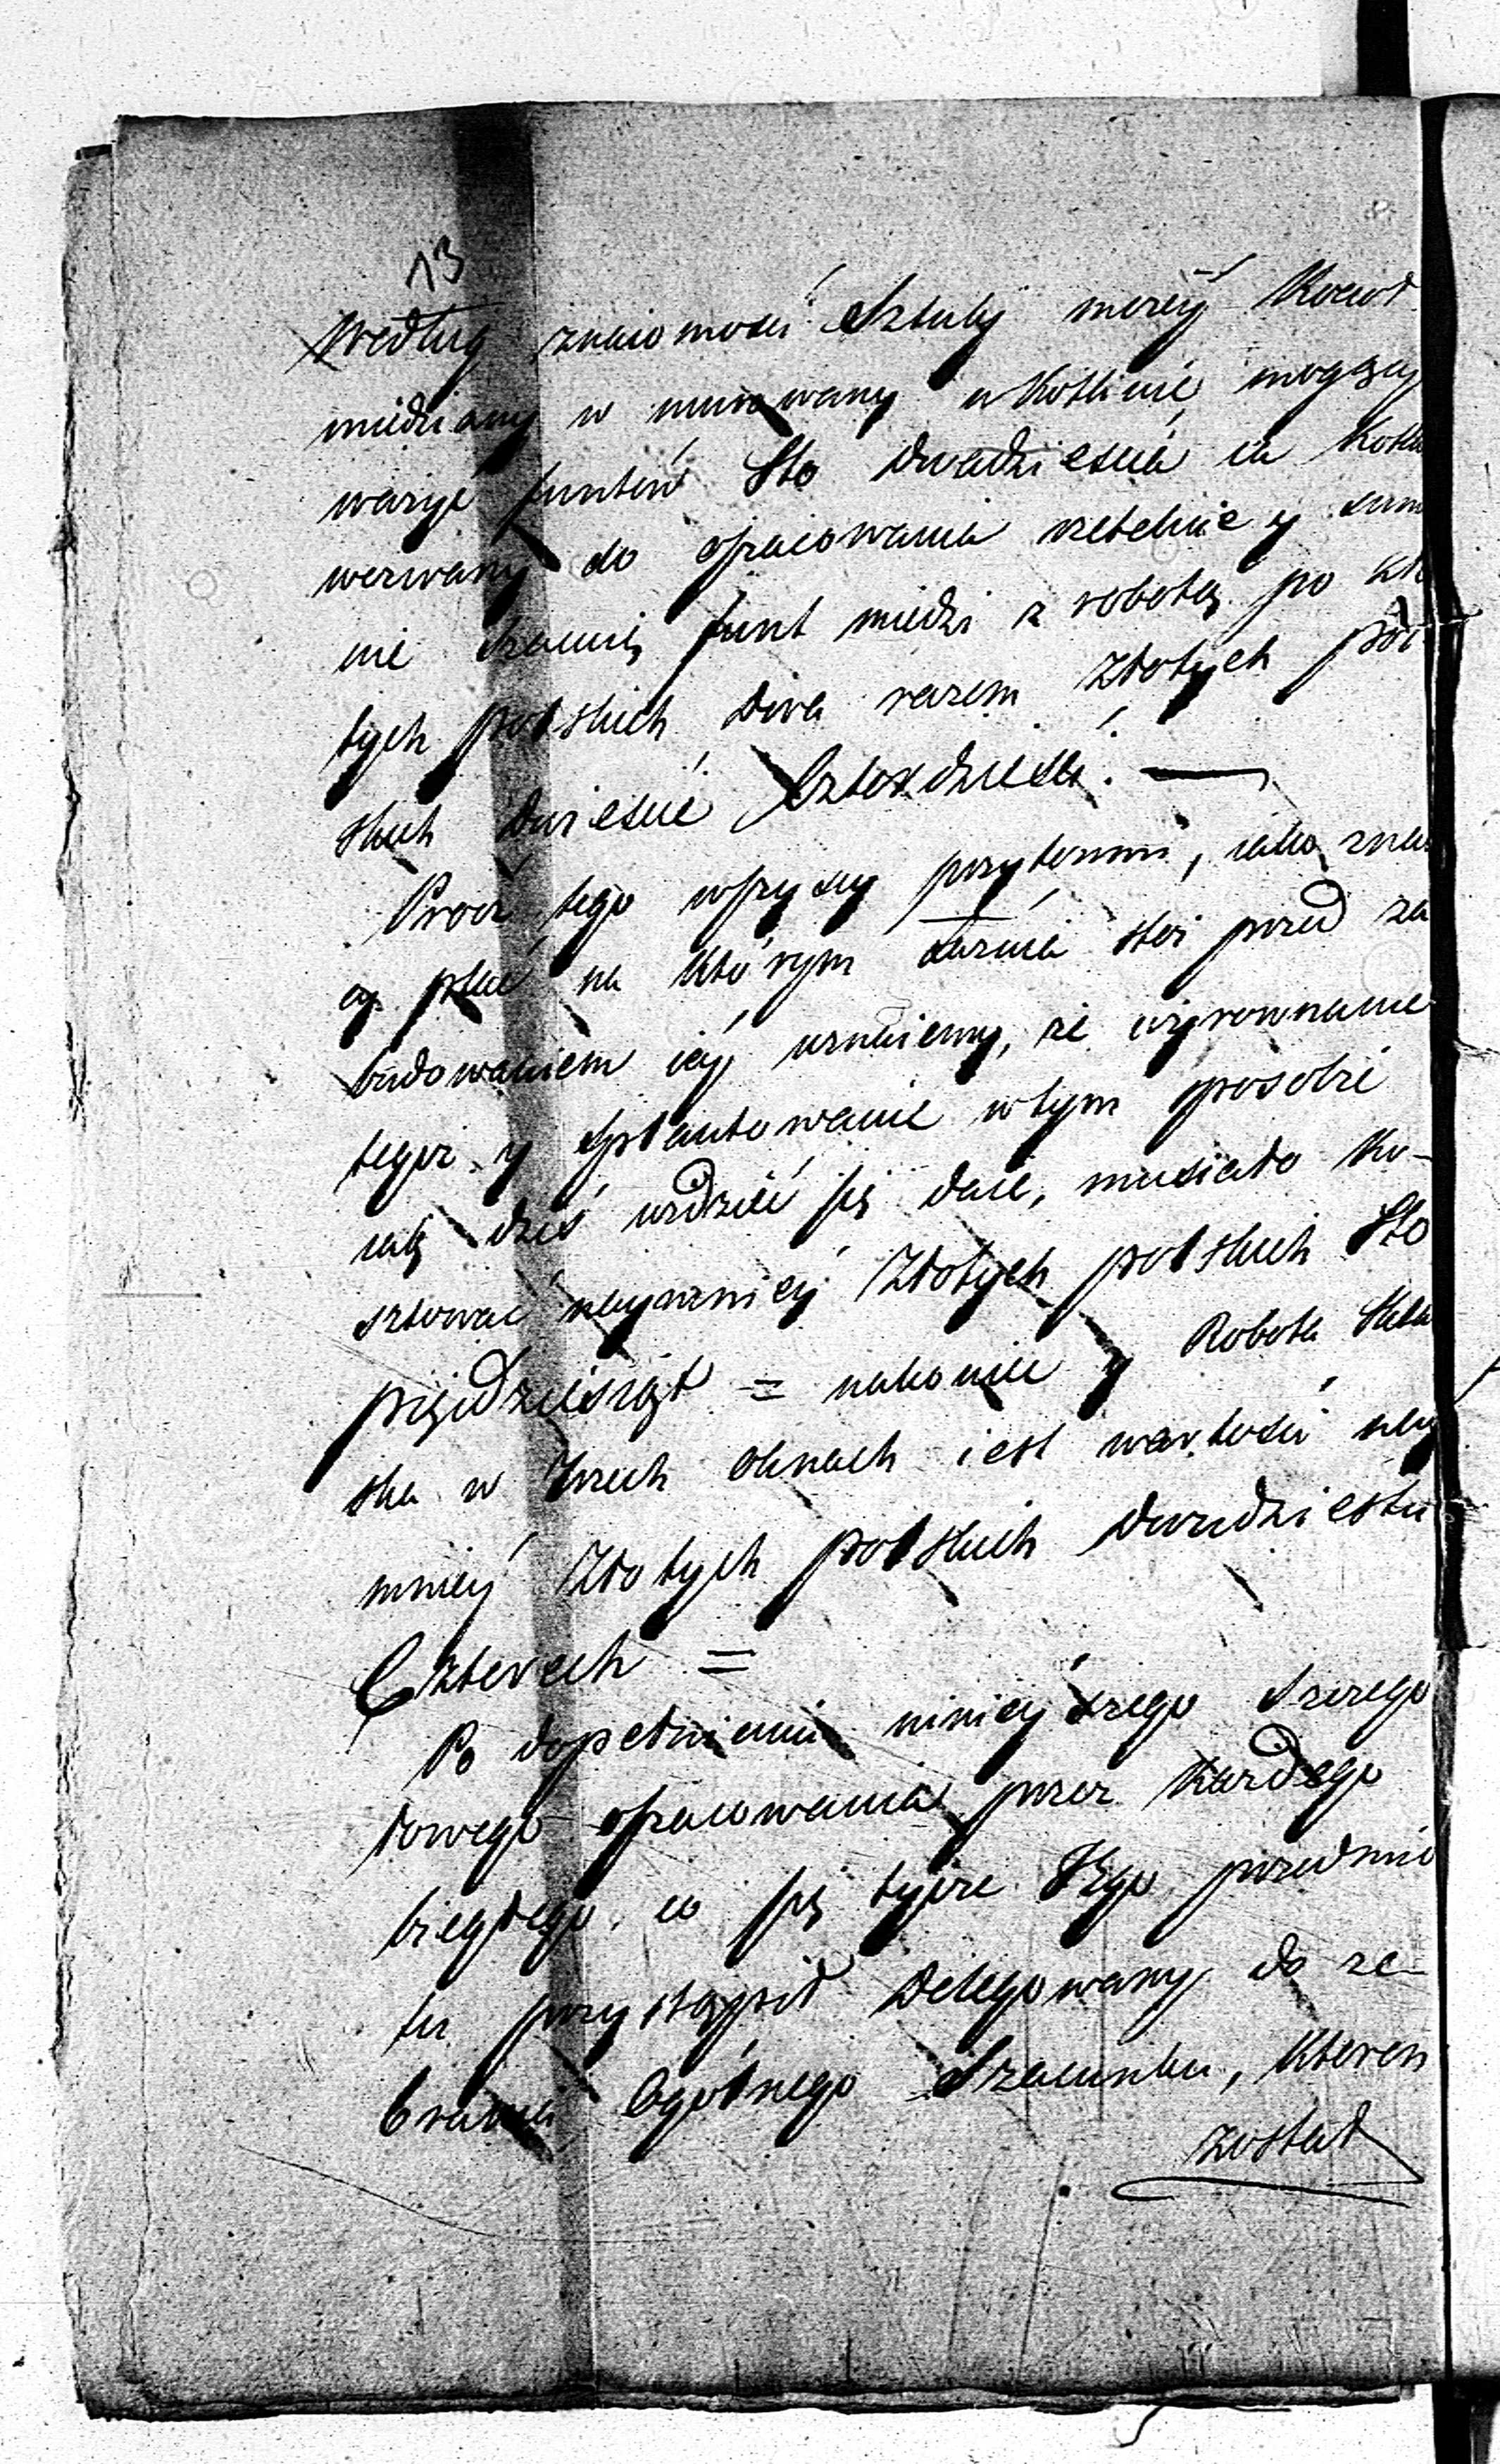 13
Według znaiomości Sztuky moiey Kocioł
miedziany w murowany w Kotlinie mogący
ważyć funtów Sto dwadzieścia ia Kotla
wezwany do opracowania rzetelnie y sum
nie szacuię funt miedzi z robotą po zło
tych polskich dwa razem złotych pol
skich dwieście czterdzieści. —
Procz tego wszyscy przytomni, iako znai
cy plac na którym stoi przed za
budowaniem iey uznaiemy, że wyrownanie
tegoż y splantowanie w tym sposobie
iak dziś widzieć się daie, musiało ko-
sztować naymniey Złotych polskich Sto
pięćdziesiąt = nakoniec y Robota Szkla
ska w trzech oknach iest wartości nay
mniey Złotych polskich dwudziestu
Czterech =
Po dopełnieniu ninieyszego szczegó
łowego opracowania przez każdego
biegłego, co się tycze Iego przedmio
tu przystąpił Delegowany do ze-
brania Ogólnego Szacunku, Któren
został